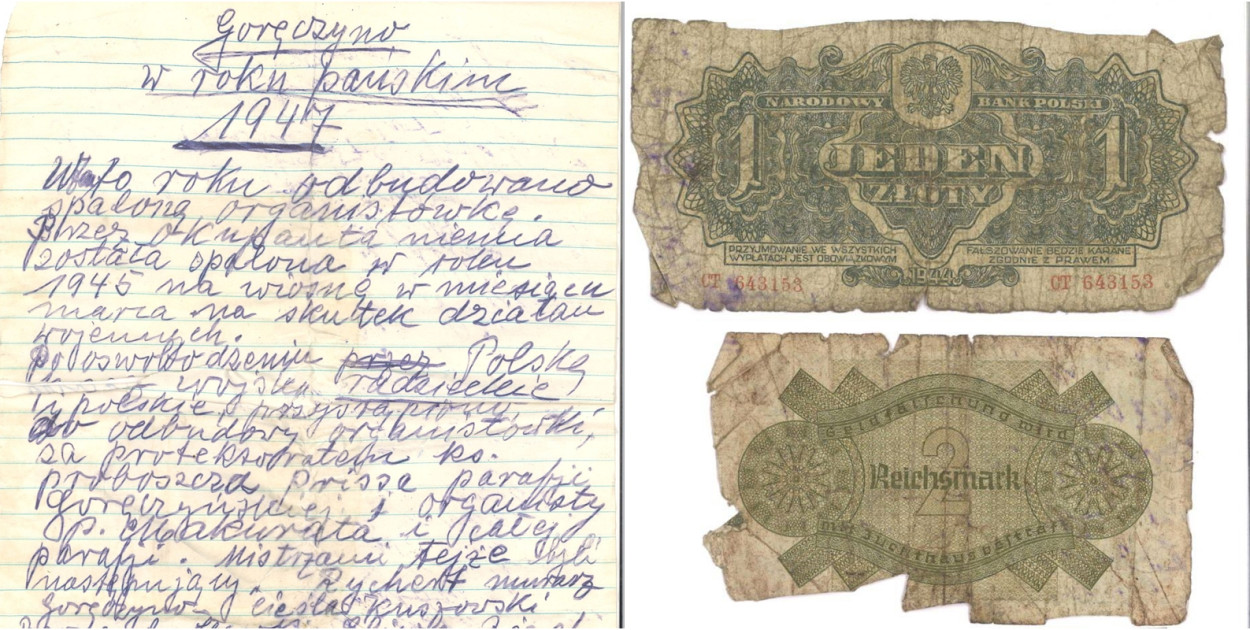 Goręczyno
w roku pańskim
1947
W to roku odbudowano
spaloną organistówkę.
Przez okupanta niemca
została spalona w roku
1945 na wiosnę w miesiącu
marca na skutek działań
wojennych.
po oswobodzeniu przez Polskę
wojska radzieckie
i polskie, przystąpiono
do odbudowy organistówki,
za protektoratem ks.
proboszcza Prissa parafji
Goręczyńskiej i organisty
p. Makurata i całej
parafji. Mistrzami tejże byli
następujący. Rychert murarz
Goręczyno cieśla Kuszowski,
NARODOWY BANK POLSKI
1 JEDEN 1
ZŁOTY
PRZYJMOWANIE WE WSZYSTKICH
WYPŁATACH JEST OBOWIĄZKOWYM
FAŁSZOWANIE BĘDZIE KARANE
ZGODNIE Z PRAWEM
1944
СТ 643153
СТ 643153
Geldfälschung wird
2
Reichsmark
2
mit Zuchthaus bestraft